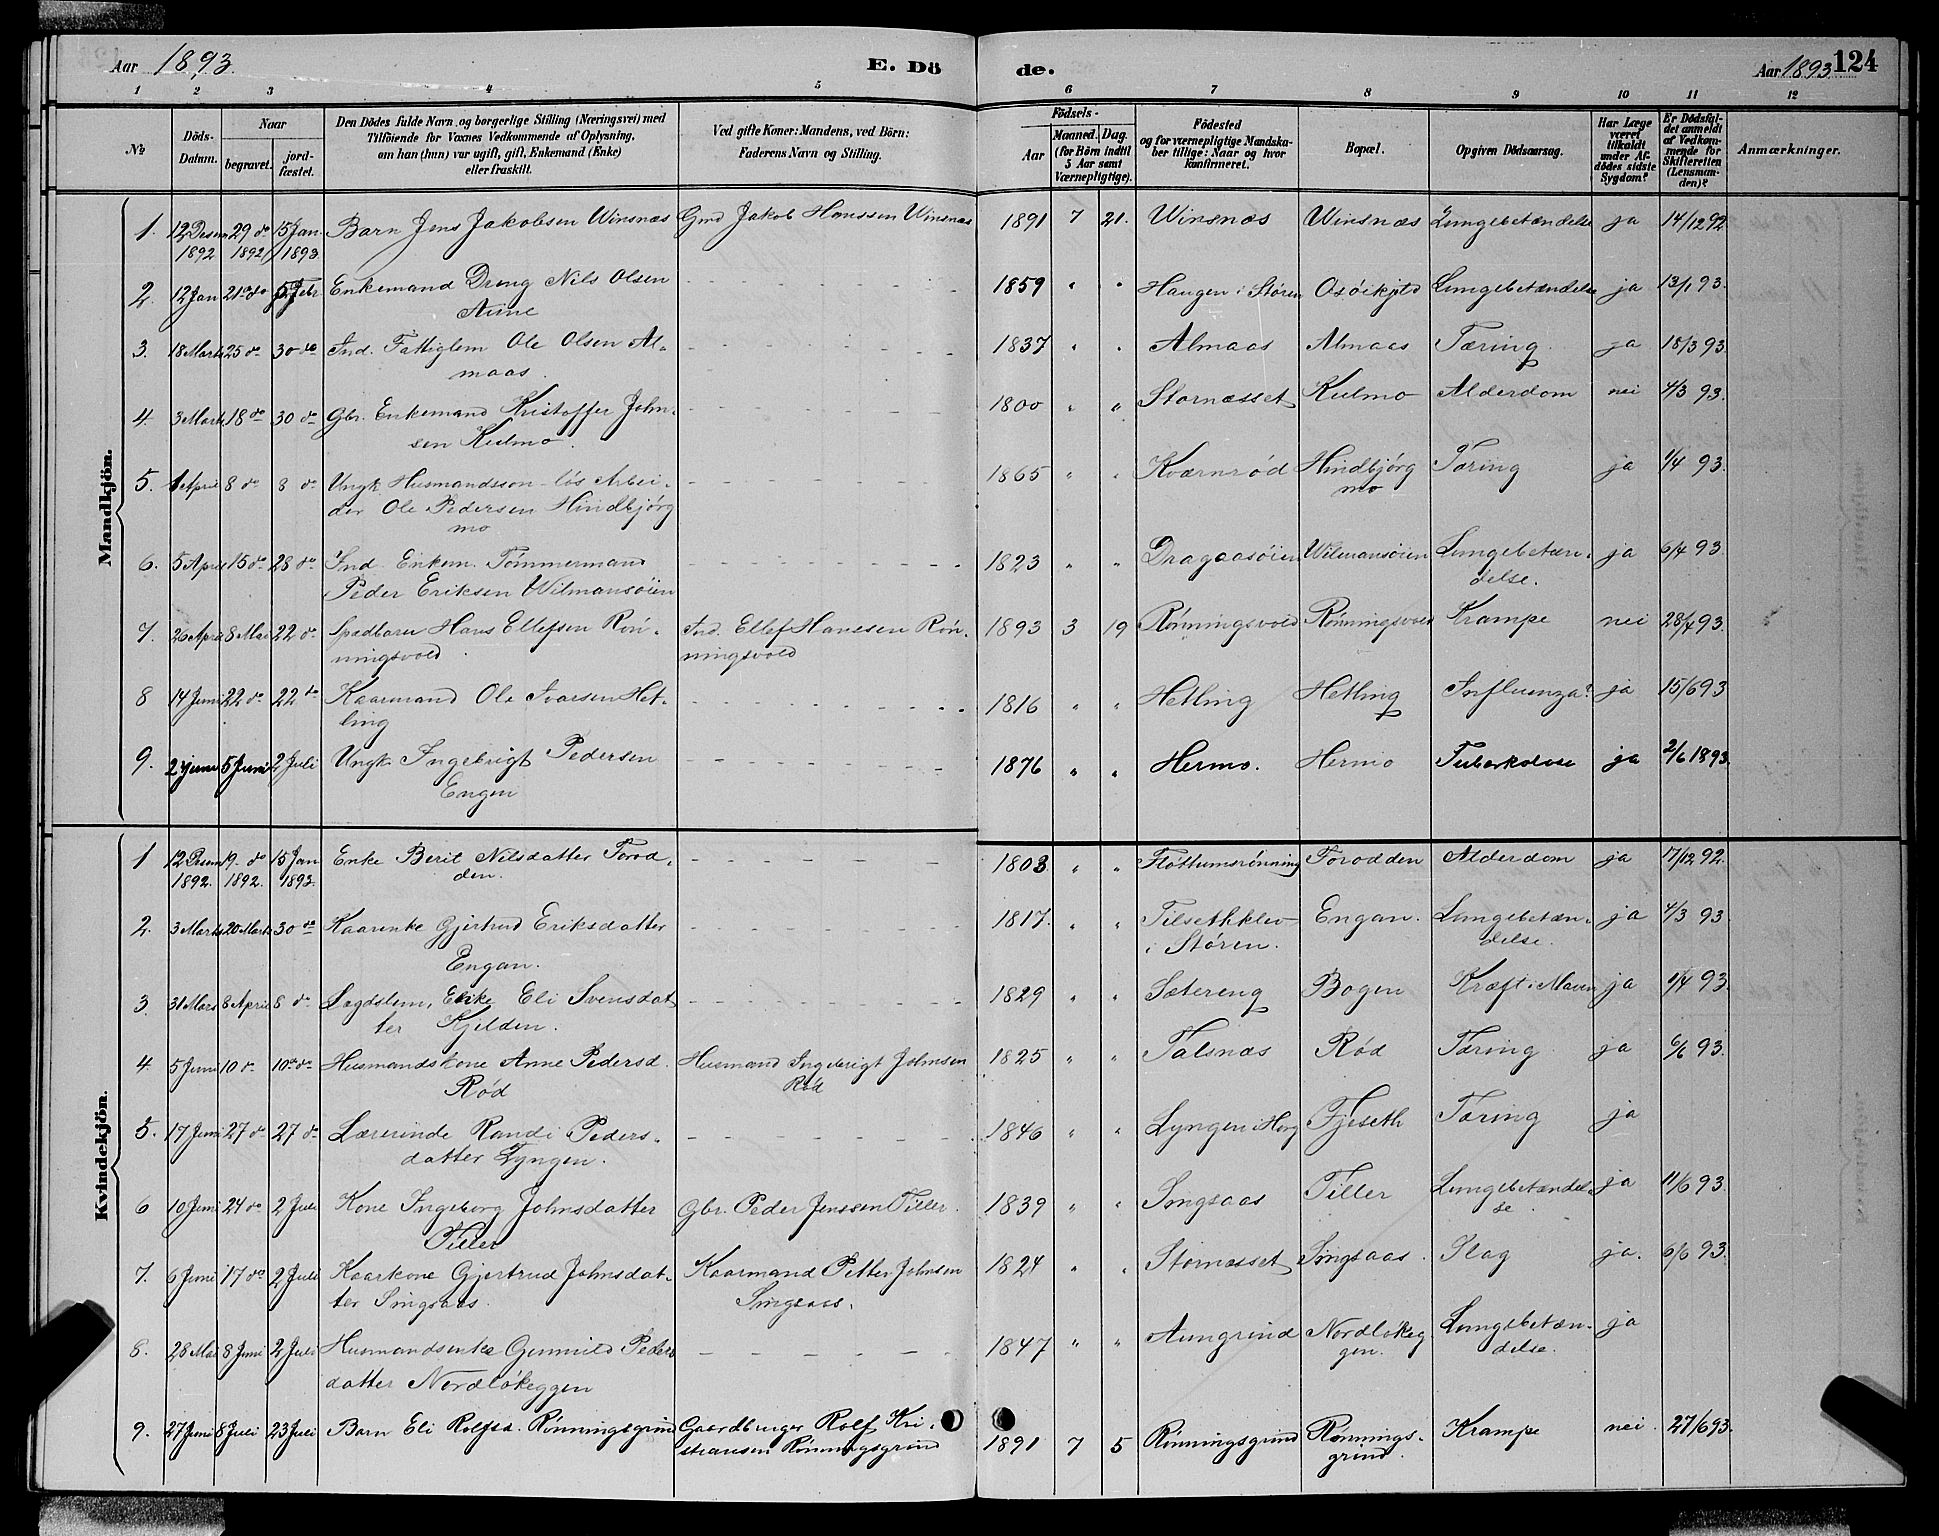 Aar 1893. E. Dö de. Aar 1893 124
1 2 3 4 5 6 7 8 9 10 11 12
№
Döds-
Datum.
Naar
begravet.
jord-
fæstet.
Den Dödes fulde Navn og borgerlige Stilling (Næringsvei) med
Tilföiende for Voxnes Vedkommende af Oplysning,
om han (hun) var ugift, gift, Enkemand (Enke)
eller fraskilt.
Ved gifte Koner: Mandens, ved Börn:
Faderens Navn og Stilling.
Födsels-
Aar
Maaned. Dag.
(for Börn indtil
5 Aar samt
Værnepligtige).
Födested
og for værnepligtige Mandska-
ber tillige: Naar og hvor
konfirmeret.
Bopæl.
Opgiven Dödsaarsag.
Har Læge
været
tilkaldt
under Af-
dödes sidste
Sygdom?
Er Dödsfal-
det anmeldt
af Vedkom-
mende for
Skifteretten
(Lensman-
den)?
Anmærkninger.
Mandkjön.
1. 12 Desem 29 do 15 Jan. Barn Jens Jakobsen Winsnæs Gmd Jakob Hanssen Winsnæs 1891 7 21. Winsnæs Winsnæs Lungebetændelse ja 14/12 92
1892 1892 1893
2. 12 Jan 21 do 5 Febr Enkemand Dreng Nils Olsen 1859 " " Haugen i Støren Lungebetændelse ja 13/1 93.
Aune
3. 18 Marts 25 do 30 do Ind. Fattiglem Ole Olsen Al- 1837 " " Almaas Almaas Tæring ja 18/3 93.
maas.
4. 3 Marts 18 do 30 do Gbr. Enkemand Kristoffer John- 1800 " " Stornesset Kulmo Alderdom nei 4/3 93.
sen Kulmo.
5. 1 April 8 do 8 do Ungk. Husmandsson løs Arbei- 1865 " " Kværnrød Hindbjørg Tæring ja 1/4 93.
der Ole Pedersen Hindbjørg mo
mo
6. 5 April 15 do 28 do Ind. Enkem. Tømmermand 1823 " " Dragaasøien Wilmansøien Lungebetæn- ja 6/4 93.
Peder Eriksen Wilmansøien delse.
7. 26 April 8 Mai 22 do Spædbarn Hans Ellefsen Røn- Ind. Ellef Hanssen Røn- 1893 3 19 Rønningsvold Rønningsvold Krampe nei 28/4 93.
ningsvold. ningsvold
8 14 Juni 22 do 22 do Kaarmand Ole Ivarsen Het- 1816 " " Hetling Hetling Influenza? ja 15/6 93
ling
9. 2 Juni 5 Juni 2 Juli Ungk. Ingebrigt Pedersen 1876 " " Hermo. Hermo Tuberkolose ja 2/6 1893.
Engen
Kvindekjön.
1 12 Desem 19. do 15 Jan Enke Berit Nilsdatter Forod- 1803 " " Fløttumsrønning Forodden Alderdom ja 17/12 92.
1892. 1892. 1893. den.
2. 3 Marts 20 Marts 30 do Kaarenke Gjertrud Eriksdatter 1817. " " Tilsethklev Engan. Lungebetæn- ja 4/3 93
Engan. i Støren. delse.
3 31 Mars 8 April 8 do Lægdslem, Enke Eli Svensdat 1829 " " Sætereng Bogen Kræft i Maven ja 1/4 93.
ter Kjelden.
4. 5 Juni 10 do 10 do Husmandskone Anne Pedersd. Husmand Ingebrigt Johnsen 1825 " " Talsnæs Rød Tæring ja 6/6 93.
Rød Rød
5. 17 Juni 27 do 27 do Lærerinde Randi Peders- 1846 " " Lyngen i Horg Fjeseth Tæring ja
datter Lyngen.
6 10 Juni 24 do 2 Juli Kone Ingeborg Johnsdatter Gbr. Peder Jenssen Tiller. 1839 " " Singsaas Tiller Lungebetændel- ja 11/6 93.
Tiller se
7. 6 Juni 17 do 2 Juli Kaarkone Gjertrud Johnsdat- Kaarmand Petter Johnsen 1824 " " Stornesset Singsaas. Slag ja. 6/6 93.
ter Singsaas. Singsaas.
8. 28 Mai 8 Juni 2 Juli Husmandsenke Gunnild Peders 1847 " " Aungrind Nordløkeg Lungebetæn- ja
datter Nordløkeggen gen. delse.
9. 27 Juni 8 Juli 23 Juli Barn Eli Rolfsd. Rønningsgrind Gaardbruger Rolf Kri- 1891 7 5 Rønningsgrind Rønnings- Krampe nei. 27/6 93.
stiansen Rønningsgrind grind.